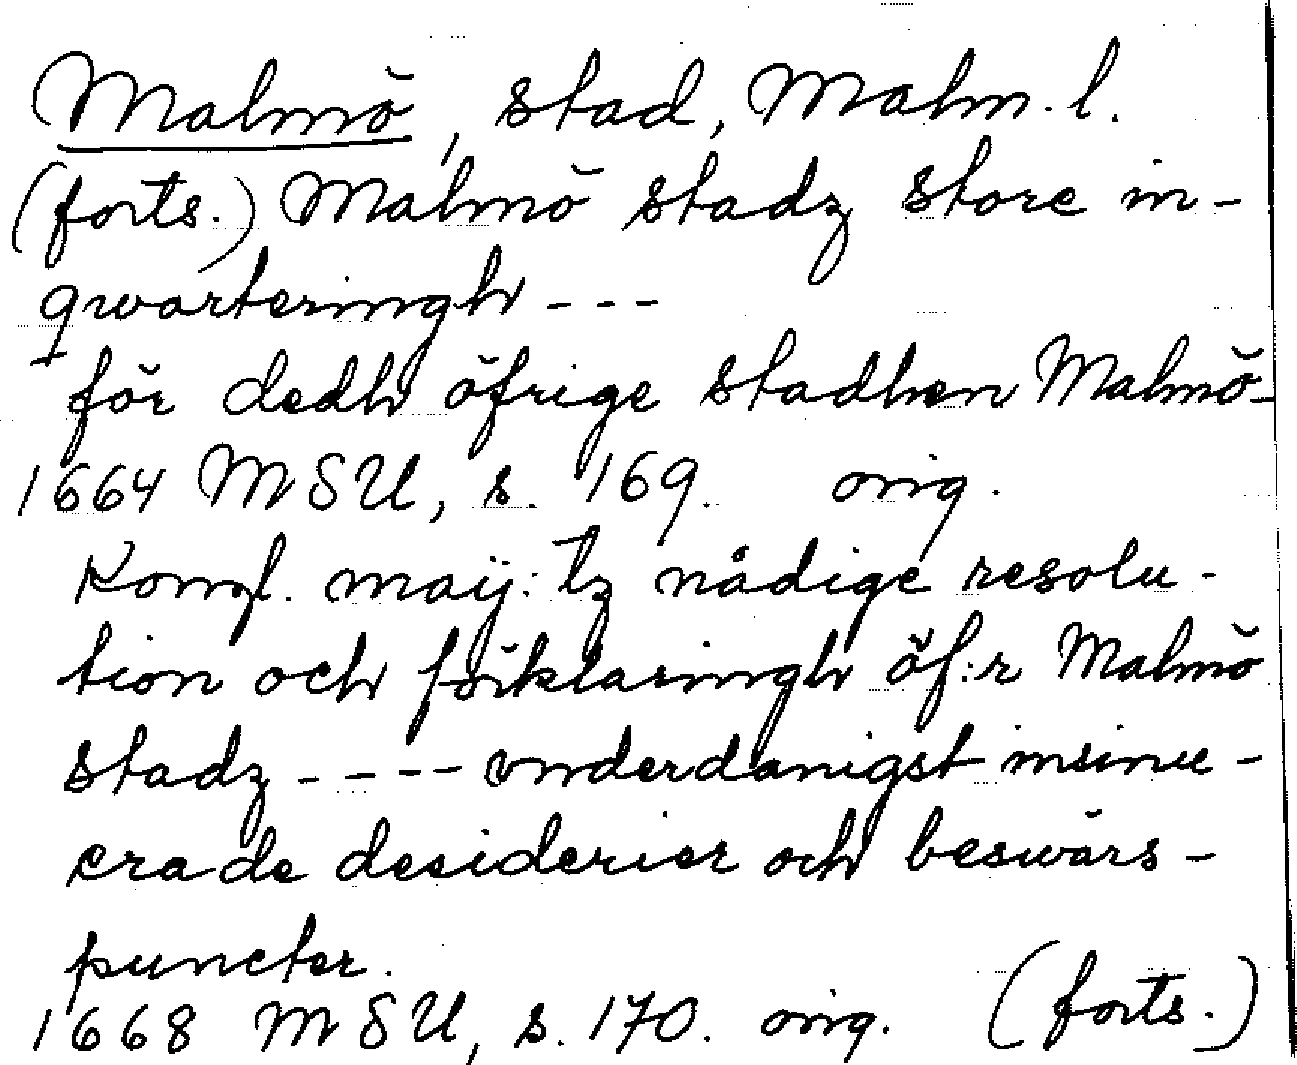 Malmö, stad, Malm. l.
(forts.) Malmö stadz store in-
qwarteringh ---
för dedh öfrige stadhen Malmö-
1664 MSU, s. 169. orig.
Kongl. maij:tz nådige resolu-
tion och förklaringh öf:r Malmö
stadz ---- vnderdanigst insinu-
erade desiderier och beswärs-
puncter.
1668 MSU, s. 170. orig. (forts.)